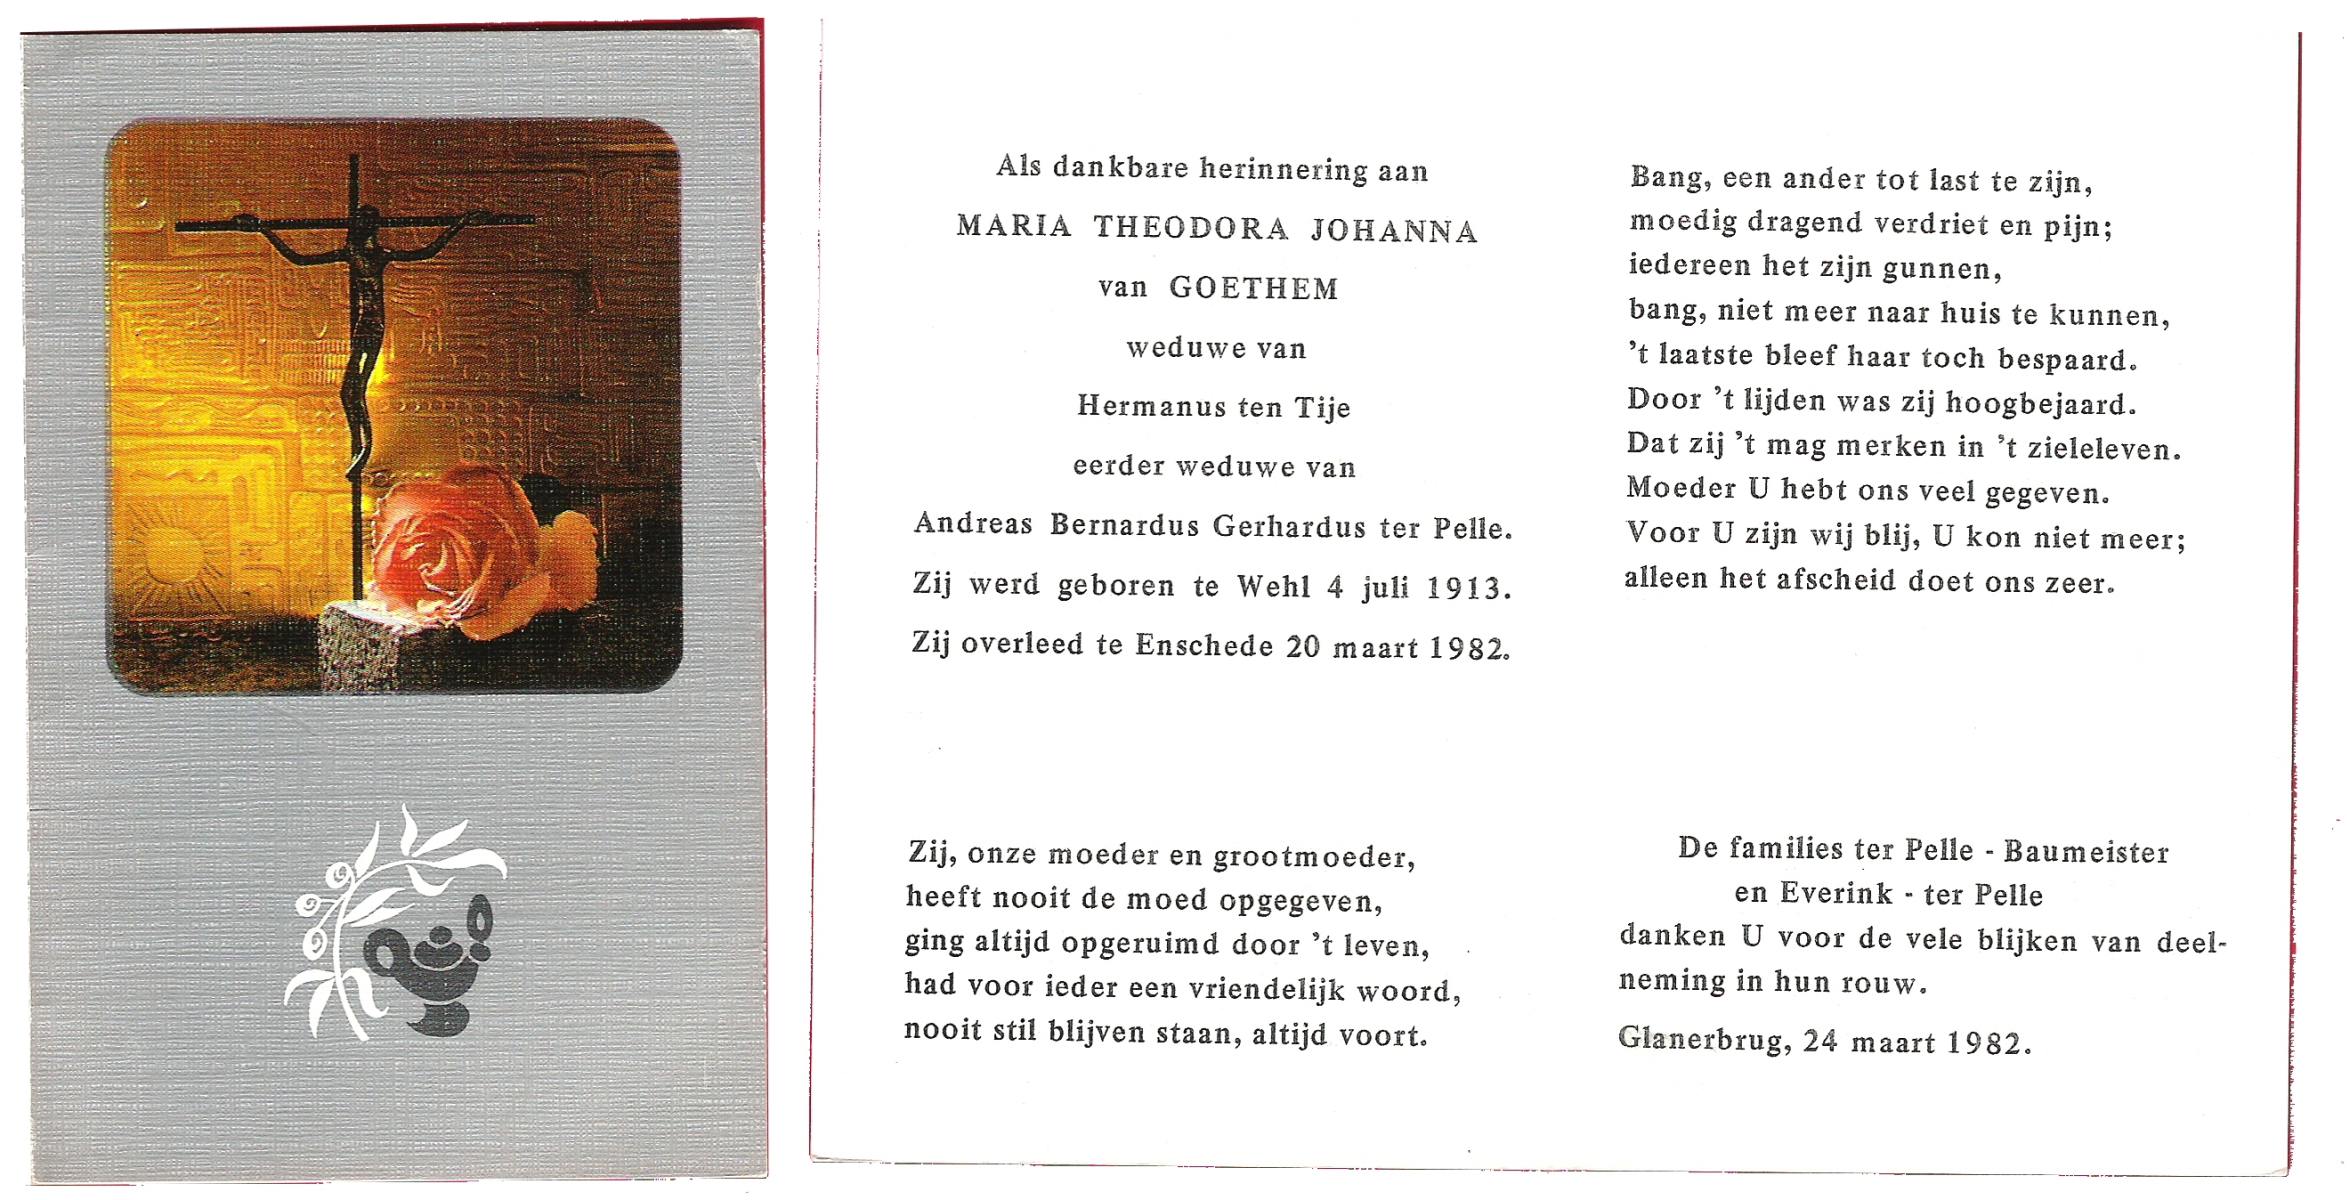 Als dankbare herinnering aan
MARIA THEODORA JOHANNA
van GOETHEM
weduwe van
Hermanus ten Tije
eerder weduwe van
Andreas Bernardus Gerhardus ter Pelle.
Zij werd geboren te Wehl 4 juli 1913.
Zij overleed te Enschede 20 maart 1982.
Zij, onze moeder en grootmoeder,
heeft nooit de moed opgegeven,
ging altijd opgeruimd door 't leven,
had voor ieder een vriendelijk woord,
nooit stil blijven staan, altijd voort.
Bang, een ander tot last te zijn,
moedig dragend verdriet en pijn;
iedereen het zijn gunnen,
bang, niet meer naar huis te kunnen,
't laatste bleef haar toch bespaard.
Door 't lijden was zij hoogbejaard.
Dat zij 't mag merken in 't zieleleven.
Moeder U hebt ons veel gegeven.
Voor U zijn wij blij, U kon niet meer;
alleen het afscheid doet ons zeer.
De families ter Pelle - Baumeister
en Everink - ter Pelle
danken U voor de vele blijken van deel-
neming in hun rouw.
Glanerbrug, 24 maart 1982.